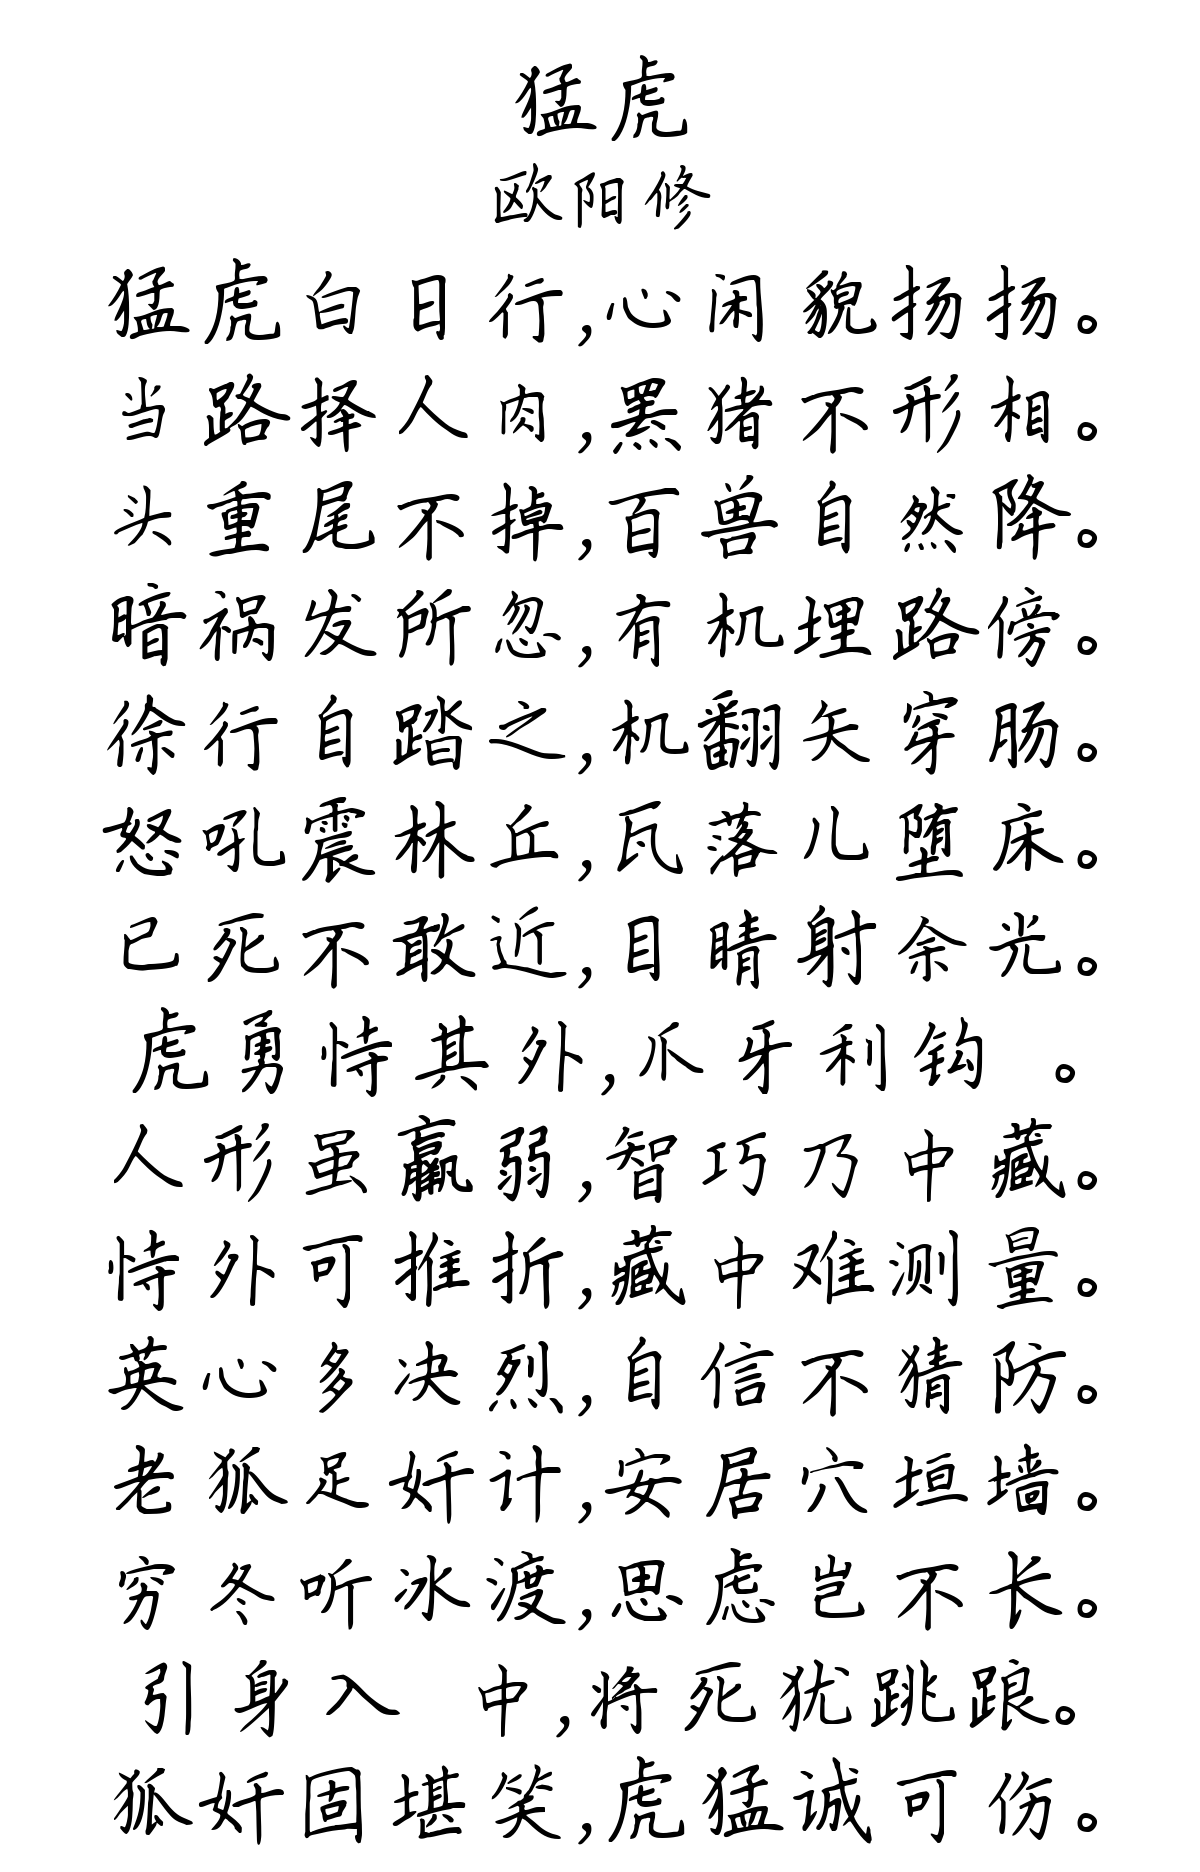 猛虎
欧阳修
猛虎白日行,心闲貌扬扬。
当路择人肉,罴猪不形相。
头重尾不掉,百兽自然降。
暗祸发所忽,有机埋路傍。
徐行自踏之,机翻矢穿肠。
怒吼震林丘,瓦落儿堕床。
已死不敢近,目睛射余光。
虎勇恃其外,爪牙利钩 。
人形虽羸弱,智巧乃中藏。
恃外可推折,藏中难测量。
英心多决烈,自信不猜防。
老狐足奸计,安居穴垣墙。
穷冬听冰渡,思虑岂不长。
引身入 中,将死犹跳踉。
狐奸固堪笑,虎猛诚可伤。